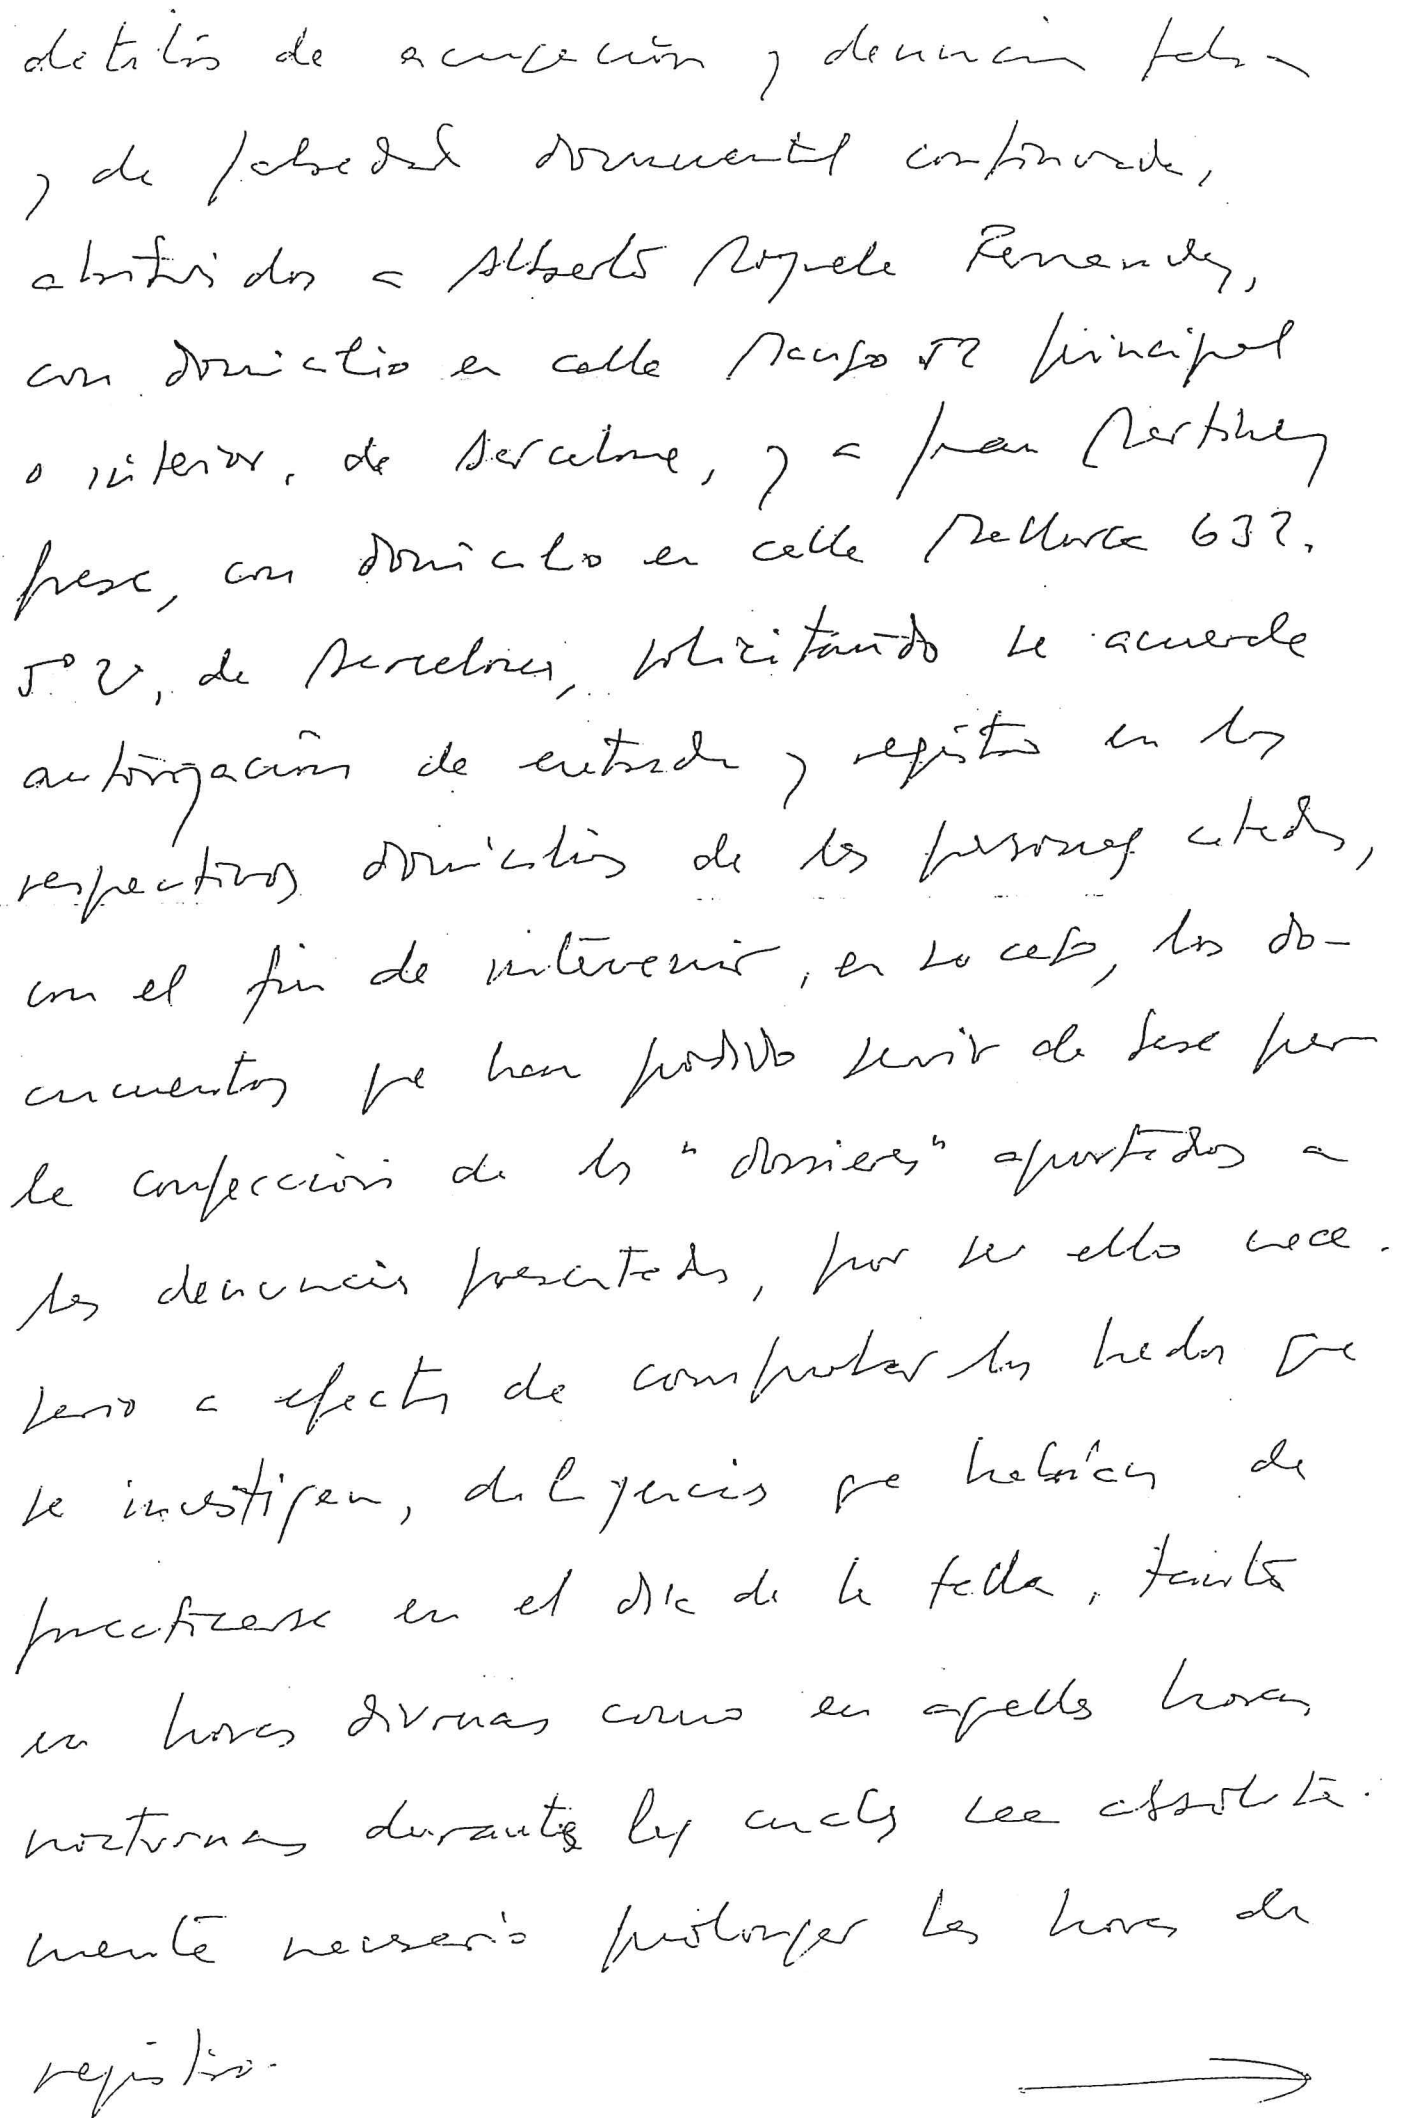 delitos de acusación y denuncia falsa
y de falsedad documental continuada,
atribuidos a Alberto Royuela Fernandez,
con domicilio en calle Manso 52 principal
o interior, de Barcelona, y a Juan Martinez
, con domicilio en calle Mallorca 632.
5º 2ª, de Barcelona, solicitando se acuerde
autorización de entrada y registro en los
respectivos domicilios de las personas citadas,
con el fin de intervenir, en su caso, los do-
cumentos que han podido servir de base para
la confección de los "dossieres" aportados a
las denuncias presentadas, por ser ello nece-
sario a efectos de comprobar los hechos que
se investigan, diligencias que habrían de
practicarse en el día de la fecha, tanto
en horas diurnas como en aquellas horas
nocturnas durante las cuales sea absoluta-
mente necesario prolongar las horas de
registro.